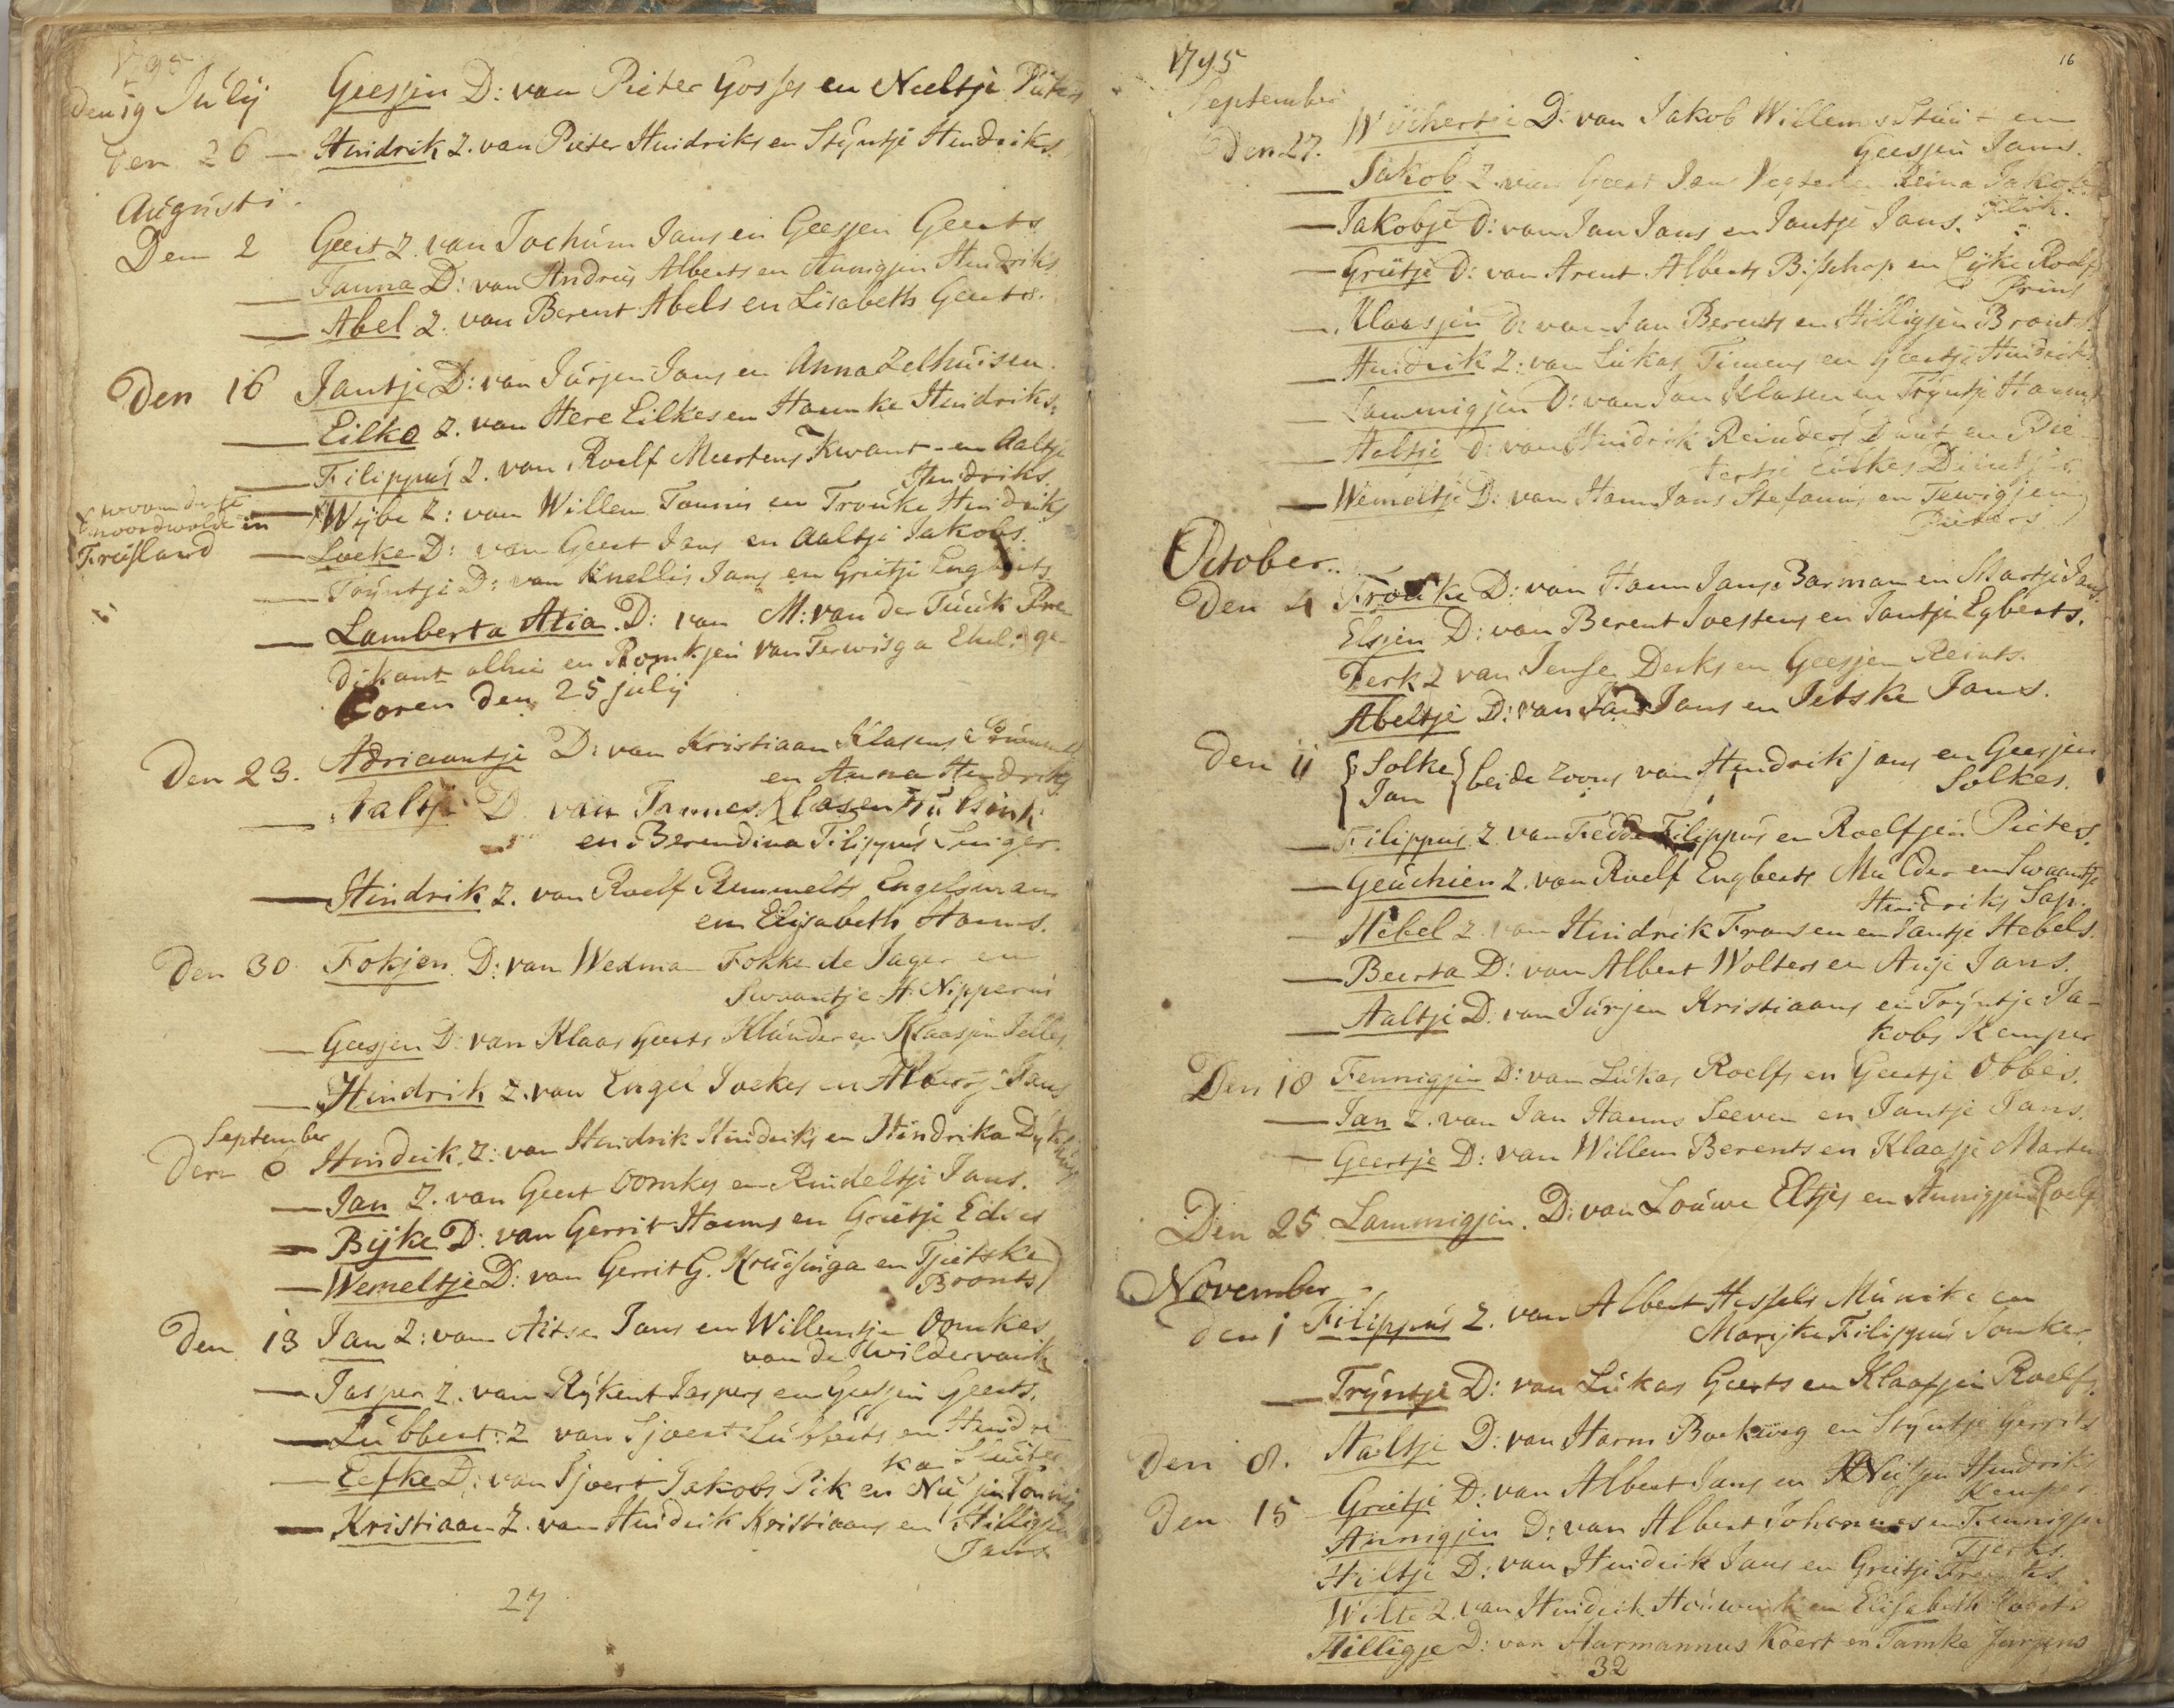 1795
den 19 Julij Geesjen D: van Pieter Gosses en Neeltje Pieters
den 26 — Hindrik Z. van Pieter Hindriks en Stijntje Hendriks.
Augusti.
Den 2 Geert Z. van Jochum Jans en Geesjen Geerts
— Janna D: van Andries Alberts en Annigjen Hindriks
— Abel Z. van Berent Abels en Lisabeth Geerts.
Den 16 Jantje D: van Jurjen Jans en Anna Zelhuisen.
— Eilke Z. van Here Eilkes en Hamke Hindriks.
— Filippus Z. van Roelf Meertens Kwant en Aaltje
Hendriks.
— Wijbe Z: van Willem Tonnis en Trouke Hindriks
noordwolde in
Friesland
— Loeke D: van Geert Jans en Aaltje Jakobs.
— Trijntje D: van Knellis Jans en Grietje Engberts
— Lamberta Atia. D: van M: van der Tuuk Pre-
dikant alhier en Romkjen van Terwisga Ehel: ge-
boren den 25 julij
Den 23. Adriaantje D: van Kristiaan Klasens
en Anna Hendriks
— Aaltje D. van Jannes Klasen Hulsink
en Berendina Filippus Seuiger.
— Hindrik Z. van Roelf Remmelts Engelsman
en Elisabeth Harms.
Den 30. Fokjen. D: van Wedman Fokke de Jager en
Swaantje H. Nipperus
— Geesjen D: van Klaas Geerts Klunder en Klaasjen Jelles
— Hindrik Z. van Engel Joekes en Albertje Jans
September
Den 6 Hindrik. Z: van Hindrik Hindriks en Hindrika
— Jan Z. van Geert Oomkes en Rendeltje Jans.
— Bijke D: van Gerrit Harms en Grietje Edses
— Wemeltje D: van Gerrit G. Kruisinga en Tjietske
Bronts
Den 13 Jan Z: van Aitse Jans en Willemtje Oomkes
van de Wildervank
— Jasper Z. van Rijkent Jaspers en Geesjen Geerts.
— Lubbert: Z van Sjoert Lubberts en Hindri-
ka Sluiter
— Eefke D: van Sjoert Jakobs Pik en Tonnis
— Kristiaan Z. van Hindrik Kristiaans en Hilligjen
Jans
27
16
1795
September
Den 27. Wichertje D: van Jakob Willems Stuut en
Geesjen Jans.
— Jakob Z. van Geert Jans Vegter en Reina Jakobs
Flik.
— Jakobje D: van Jan Jans en Jantje Jans.
— Grietje D: van Arent Alberts Bisschop en Eijke Roelfs
Prins
— Klaasjen D: van Jan Berents en Hilligjen Bronts.
— Hindrik Z: van Lukas Timens en Geertje Hindriks
— Lammigjen D: van Jan Klasen en Trijntje Harms
— Aaltje D: van Hindrik Reinders en Pie-
tertje Eilkes
— Wemeltje D: van Harm Jans Stefanus en Tewigjen
Pieters
October.
Den 4 Trouke D: van Harm Jans Barman en Martje Jans.
Elsjen D: van Berent Joesters en Jantje Egberts.
Derk Z van Jense Derks en Geesjen Reints.
Abeltje D: van Jan Jans en Jetske Jans.
Den 11 { Solke
Jan } beide zoons van Hindrik jans en Geesjen
Solkes.
— Filippus Z. van Fedde Filippus en Roelfjen Pieters.
— Geuchien Z. van Roelf Engberts Mulder en Swaantje
Hindriks Sap.
— Hebel Z. van Hindrik Fransen en Jantje Hebels.
— Beerta D: van Albert Wolters en Auje Jans.
— Aaltje D. van Jurjen Kristiaans en Trijntje Ja-
kobs Kemper
Den 18 Fennigjen D: van Lukas Roelfs en Geertje Obbes.
— Jan Z. van Jan Harms Seeven en Jantje Jans.
— Geertje D: van Willem Berents en Klaasje Martens
Den 25 Lammigjen. D: van Louwe Eltjes en Annigjen Roelfs
November
den 1 Filippus Z. van Albert Hessels Munike en
Marijke Filippus Jonker.
— Trijntje D: van Lukas Geerts en Klaasjen Roelfs.
Den 8. Aaltje D: van Harm Boekweg en Stijntje Gerrits
Den 15 Grietje D: van Albert Jans en Hindriks
Kemper.
Annigjen D: van Albert Johannes en Fennigjen
Tjerks.
Hiltje D: van Hindrik Jans en Grietje
Wilte Z. van Hindrik Houwink en Elisabeth
Hilligje D: van Harmannus Koert en Tamke Jurjens
32